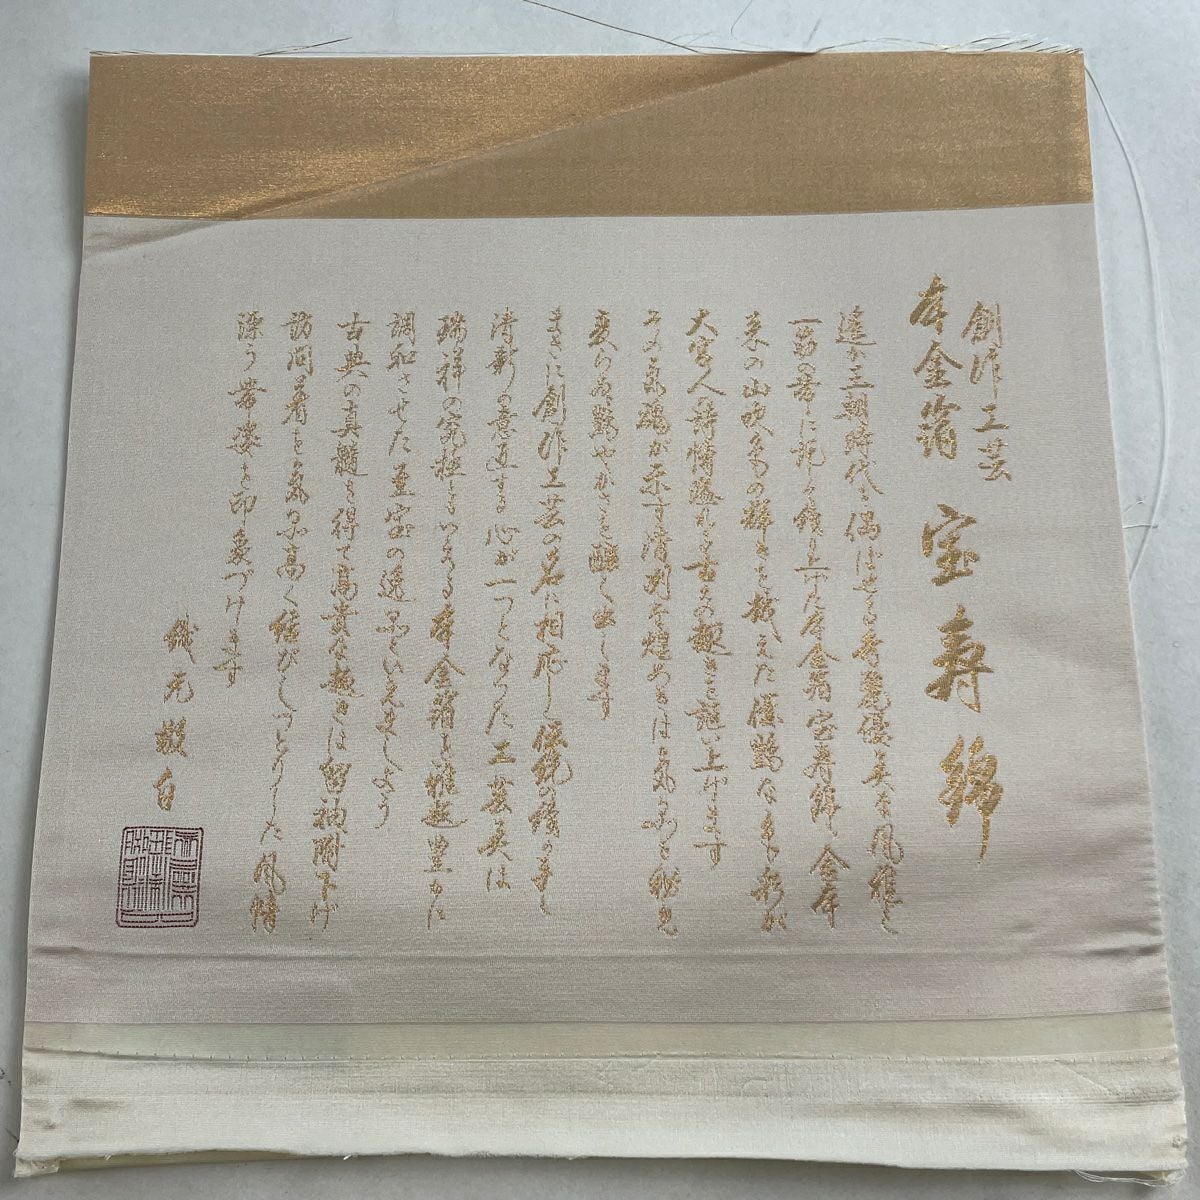 創作工芸
本金箔 宝寿錦
遙か王朝時代を偲ばせる秀麗優美な風雅を
一筋の帯に託して織り上げた本金箔宝寿錦 金本
来の山吹色の輝きを越えた優艶な
大宮人 古の趣きを謳い上げます
その が示す清冽な煌めきは気品を秘め
変らぬ艶やかさを醸し出します
まさに創作工芸の名に相応しく伝統の積み重
清新の意匠する心が一つとなった工芸美は
瑞祥の究極ともいえる本金箔を雅趣豊かに
調和させた重宝の逸品といえましょう
古典の真髄を得て高貴な趣きは留袖附下げ
訪問着を気品高く結びしっとりした風情
漂う帯姿を印象づけます
織元敬白